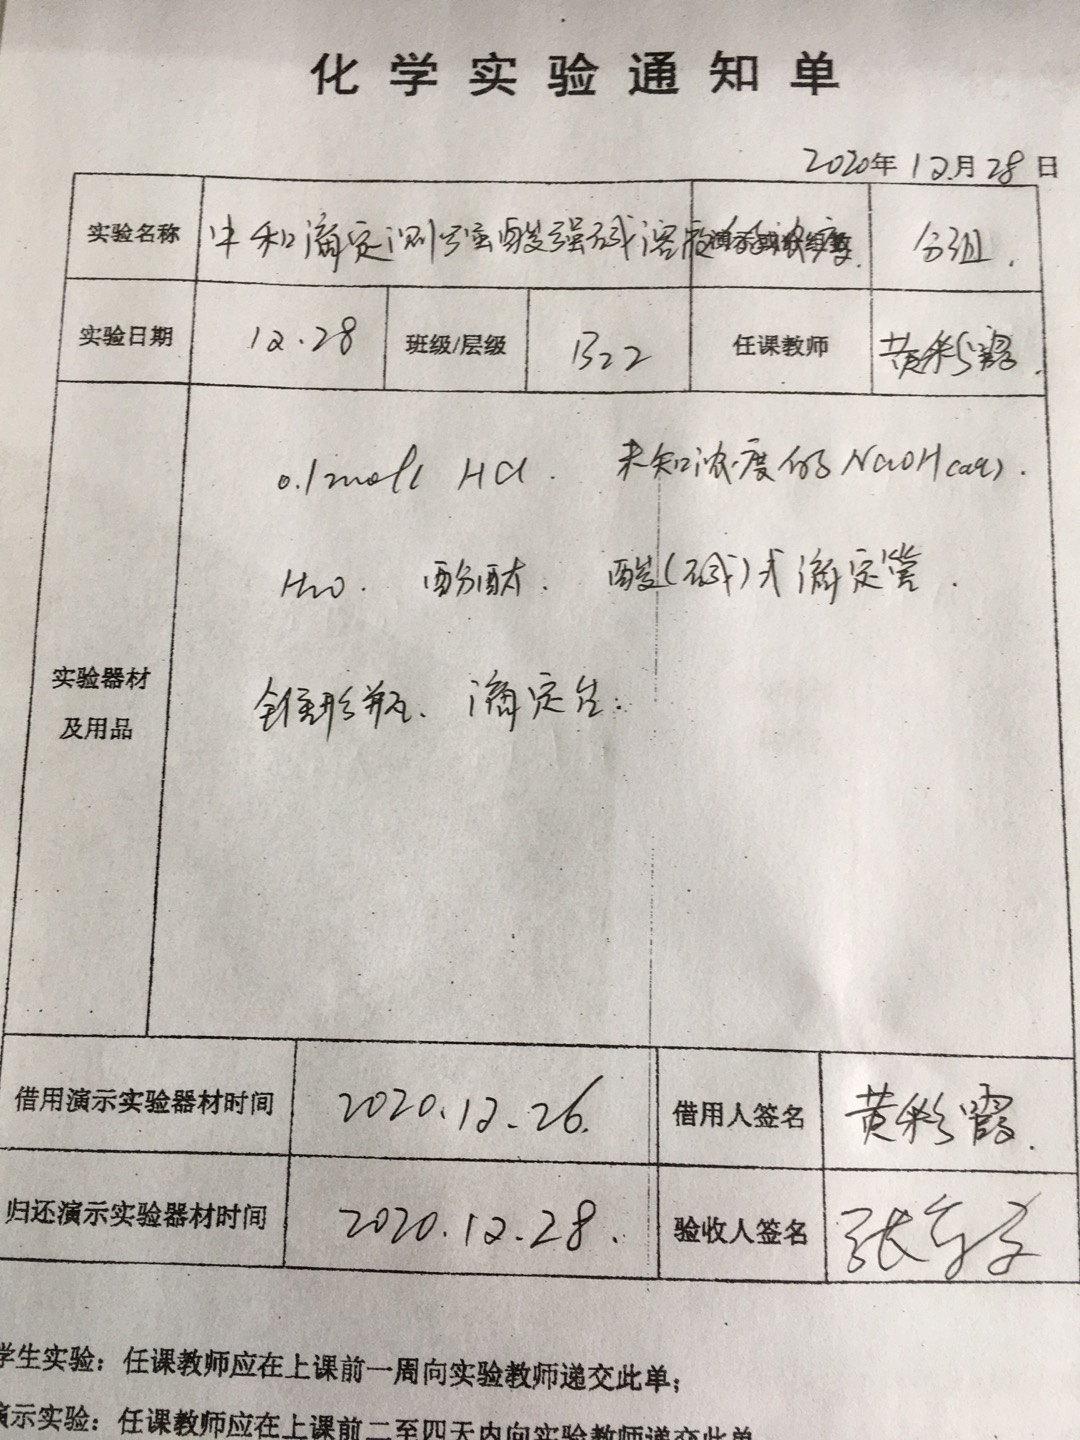 化学实验通知单
2020年12月28日
实验名称 中和滴定测强酸强碱溶液的浓度. 演示或分组数 分组.
实验日期 12.28 班级/层级 B22 任课教师 黄彩霞.
0.1mol/L HCl. 未知浓度的NaOH(aq).
H2O. 酚酞. 酸(碱)式滴定管.
实验器材
及用品
锥形瓶、滴定台.
借用演示实验器材时间 2020.12.26. 借用人签名 黄彩霞.
归还演示实验器材时间 2020.12.28. 验收人签名 张
学生实验：任课教师应在上课前一周向实验教师递交此单；
演示实验：任课教师应在上课前二至四天内向实验教师递交此单